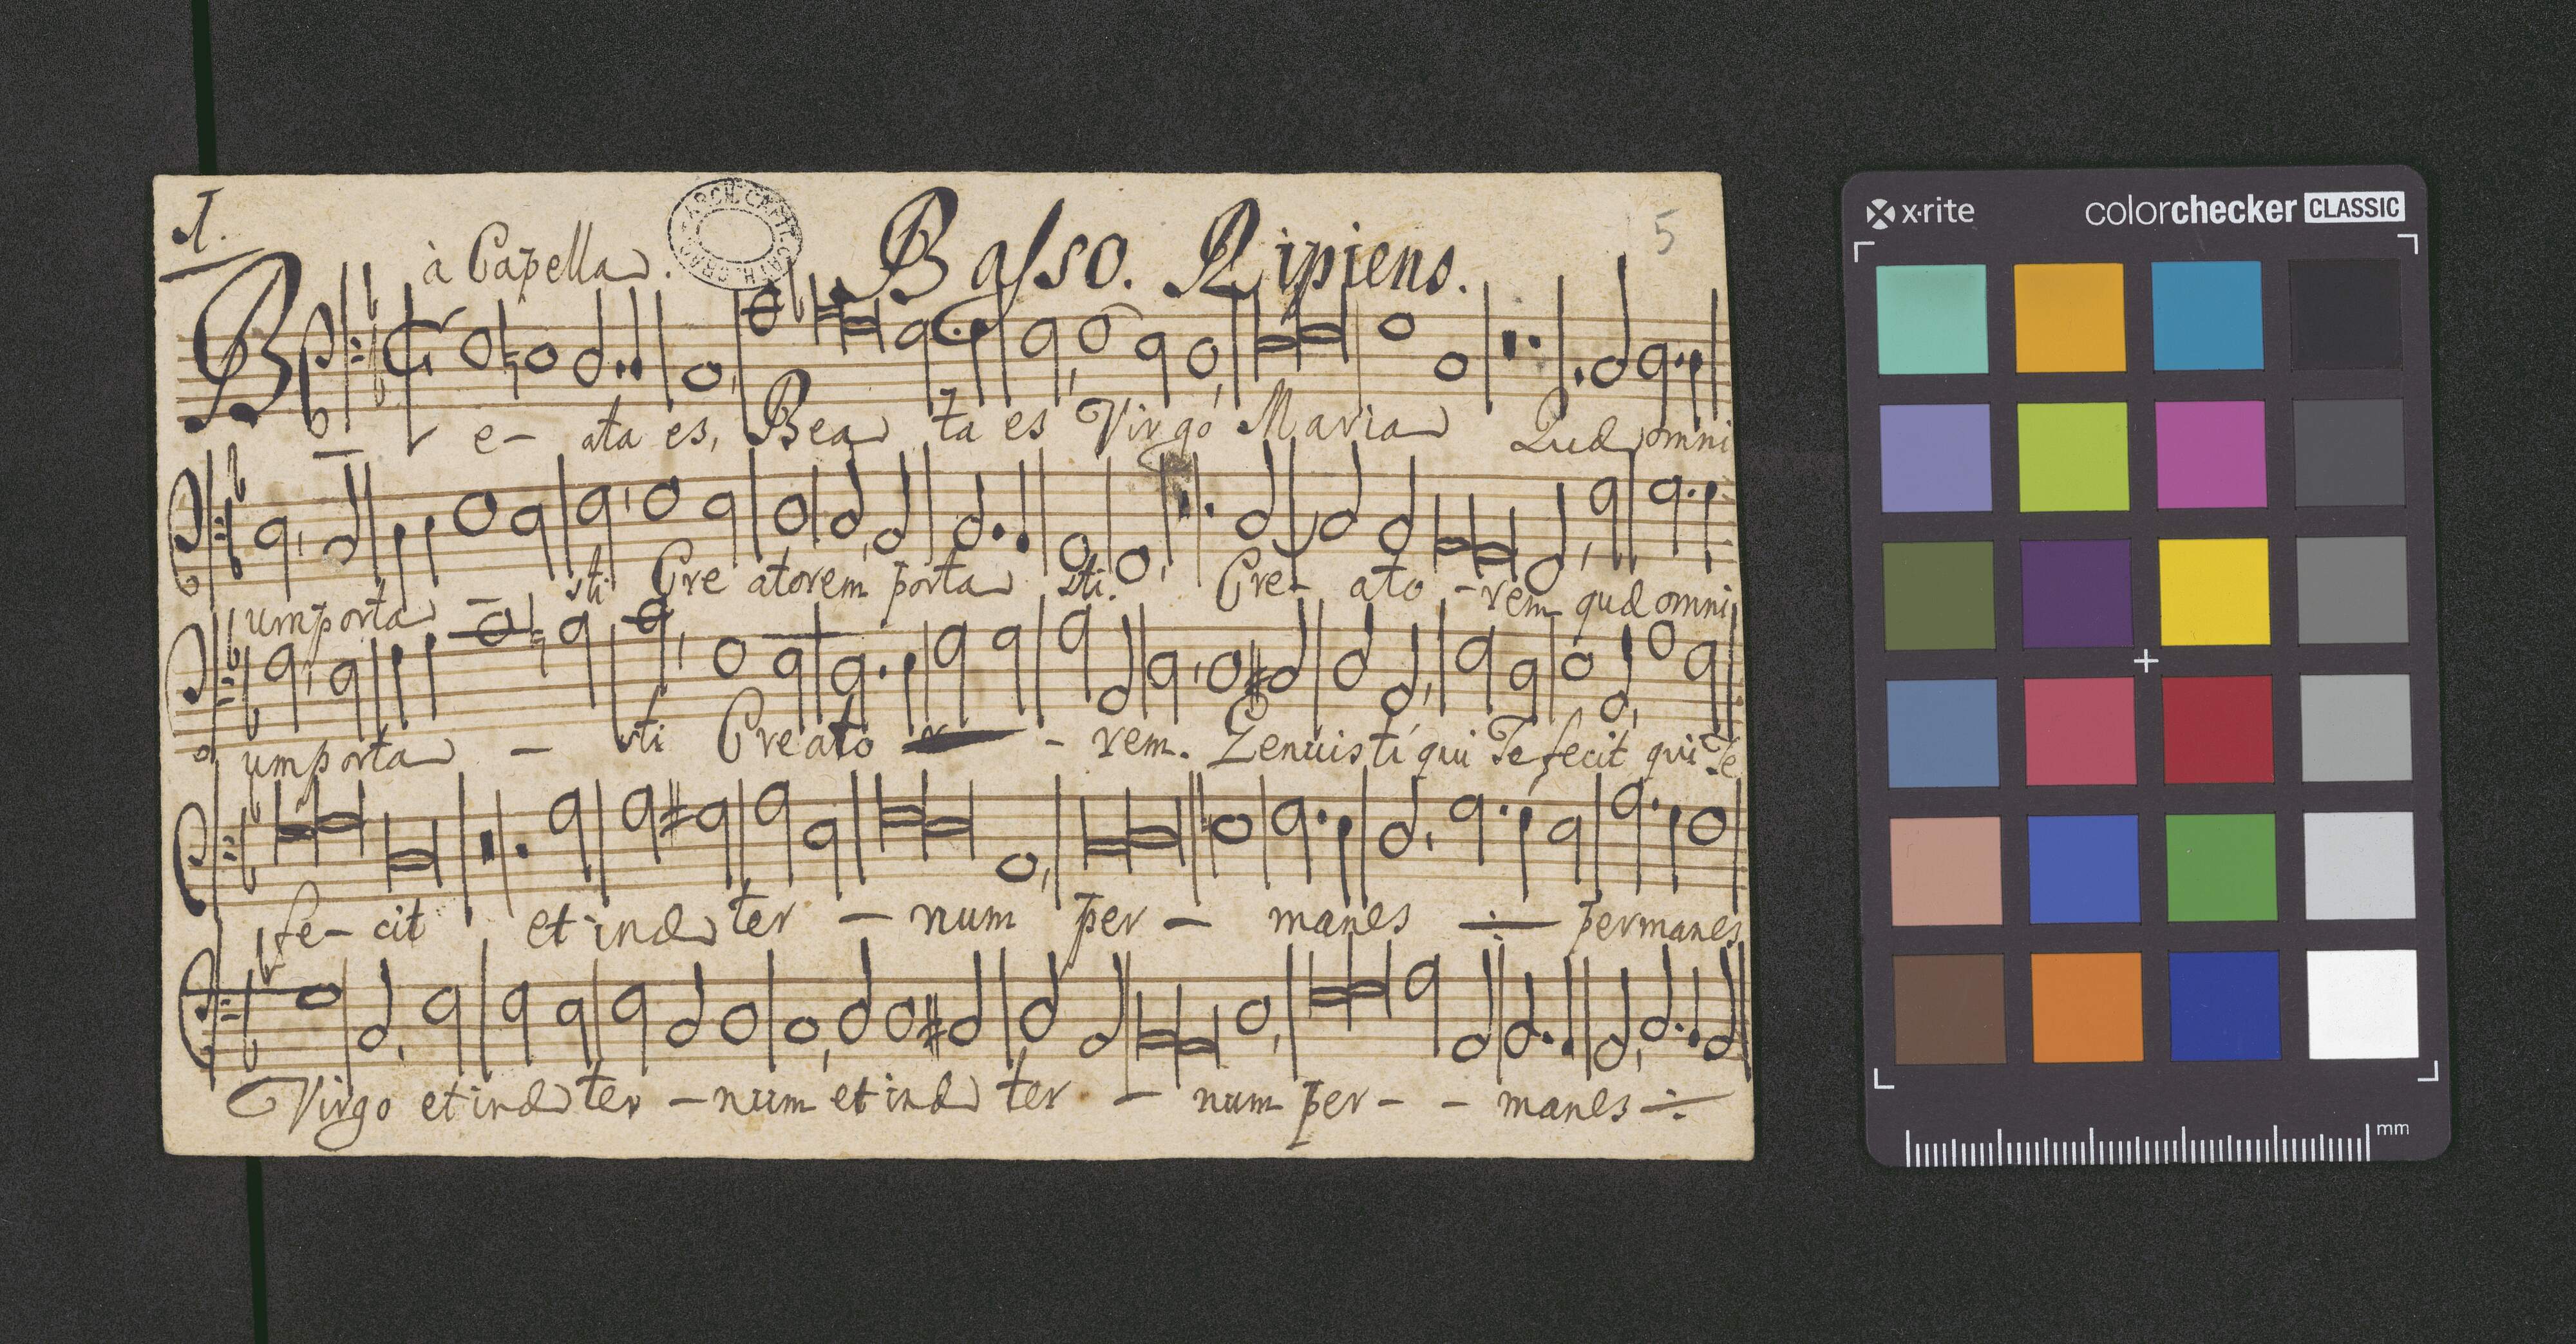 1.
à Capella. Basso. Ripiens. 5
Be- ata es, Bea ta es Virgo Maria Quæ omni
umporta - sti Cre atorem porta sti. Cre- ato -rem quæ omni
umporta - sti Creato - rem. Genuisti qui Te fecit qui Te
fe- cit et in æ ter - num per - manes ÷ permanes
Virgo et in æ ter - num et in æ ter - num per- - manes ÷
x·rite colorchecker CLASSIC
mm